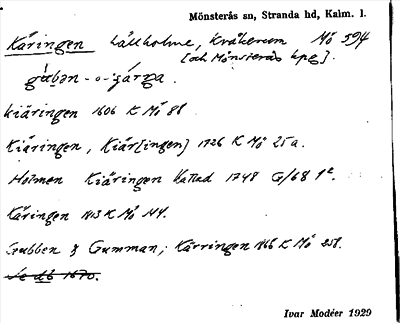 Mönsterås sn, Stranda hd, Kalm. l.
Käringen Lållholme, Kråkerum Mö 594
[och Mönsterås kpg].
gúbən - o - çárŋa.
kiäringen 1606 K Mö 86
Kiäringen, Kiär[ingen] 1726 K Mö 25a.
Holmen Kiäringen kallad 1748 G/68 1².
Käringen K Mö 144.
Gubben & Gumman; Kärringen K Mö 251.
Se db 1670.
Ivar Modéer 1929